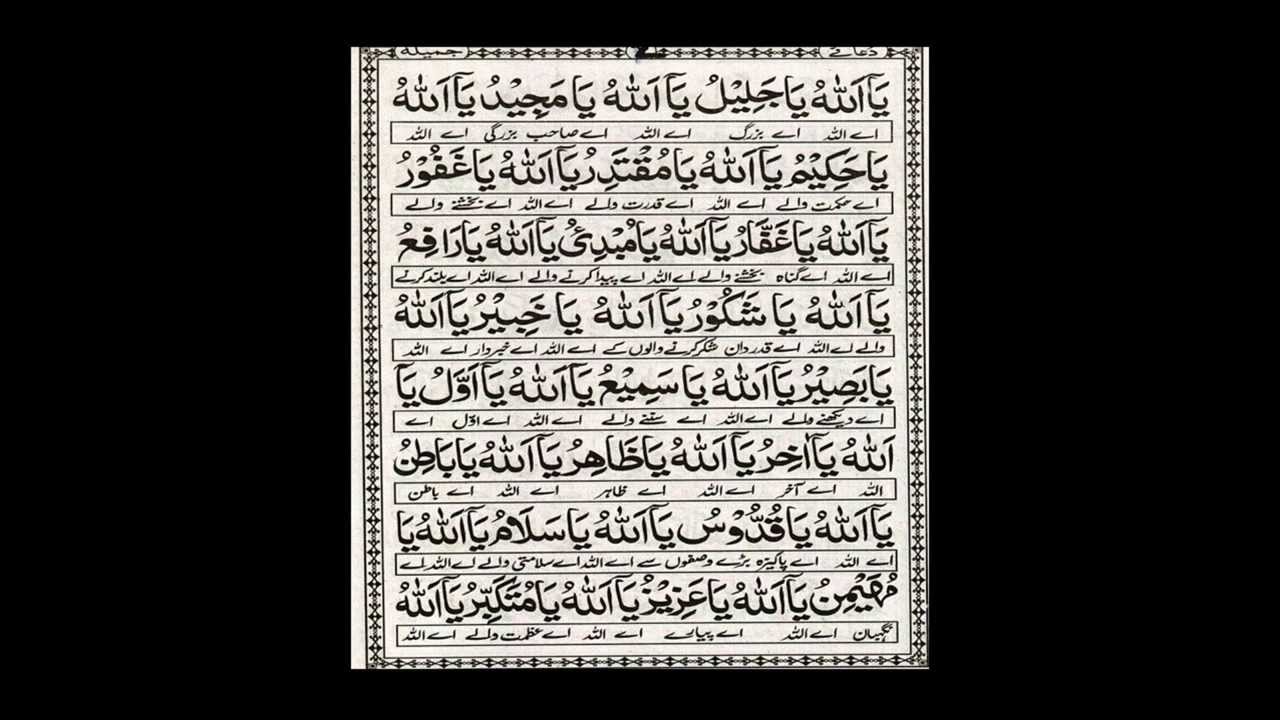 دعائے جمیلہ
یَآ اَللّٰهُ یَا جَلِیْلُ یَآ اَللّٰهُ یَا مَجِیْدُ یَآ اَللّٰهُ
اے اللہ اے بزرگ اے اللہ اے صاحب بزرگی اے اللہ
یَا حَکِیْمُ یَآ اَللّٰهُ یَا مُقْتَدِرُ یَآ اَللّٰهُ یَا غَفُوْرُ
اے حکمت والے اے اللہ اے قدرت والے اے اللہ اے بخشنے والے
یَآ اَللّٰهُ یَا غَفَّارُ یَآ اَللّٰهُ یَا مُبْدِئُ یَآ اَللّٰهُ یَا رَافِعُ
اے اللہ اے گناہ بخشنے والے اے اللہ اے پیدا کرنے والے اے اللہ اے بلند کرنے
یَآ اَللّٰهُ یَا شَکُوْرُ یَآ اَللّٰهُ یَا خَبِیْرُ یَآ اَللّٰهُ
والے اے اللہ اے قدردان شکر کرنے والوں کے اے اللہ اے خبردار اے اللہ
یَا بَصِیْرُ یَآ اَللّٰهُ یَا سَمِیْعُ یَآ اَللّٰهُ یَآ اَوَّلُ یَآ
اے دیکھنے والے اے اللہ اے سننے والے اے اللہ اے اوّل اے
اَللّٰهُ یَآ اٰخِرُ یَآ اَللّٰهُ یَا ظَاهِرُ یَآ اَللّٰهُ یَا بَاطِنُ
اللہ اے آخر اے اللہ اے ظاہر اے اللہ اے باطن
یَآ اَللّٰهُ یَا قُدُّوْسُ یَآ اَللّٰهُ یَا سَلَامُ یَآ اَللّٰهُ یَا
اے اللہ اے پاکیزہ بڑے وصفوں سے اے اللہ اے سلامتی والے اے اللہ اے
مُهَیْمِنُ یَآ اَللّٰهُ یَا عَزِیْزُ یَآ اَللّٰهُ یَا مُتَکَبِّرُ یَآ اَللّٰهُ
نگہبان اے اللہ اے پیارے اے اللہ اے عظمت والے اے اللہ